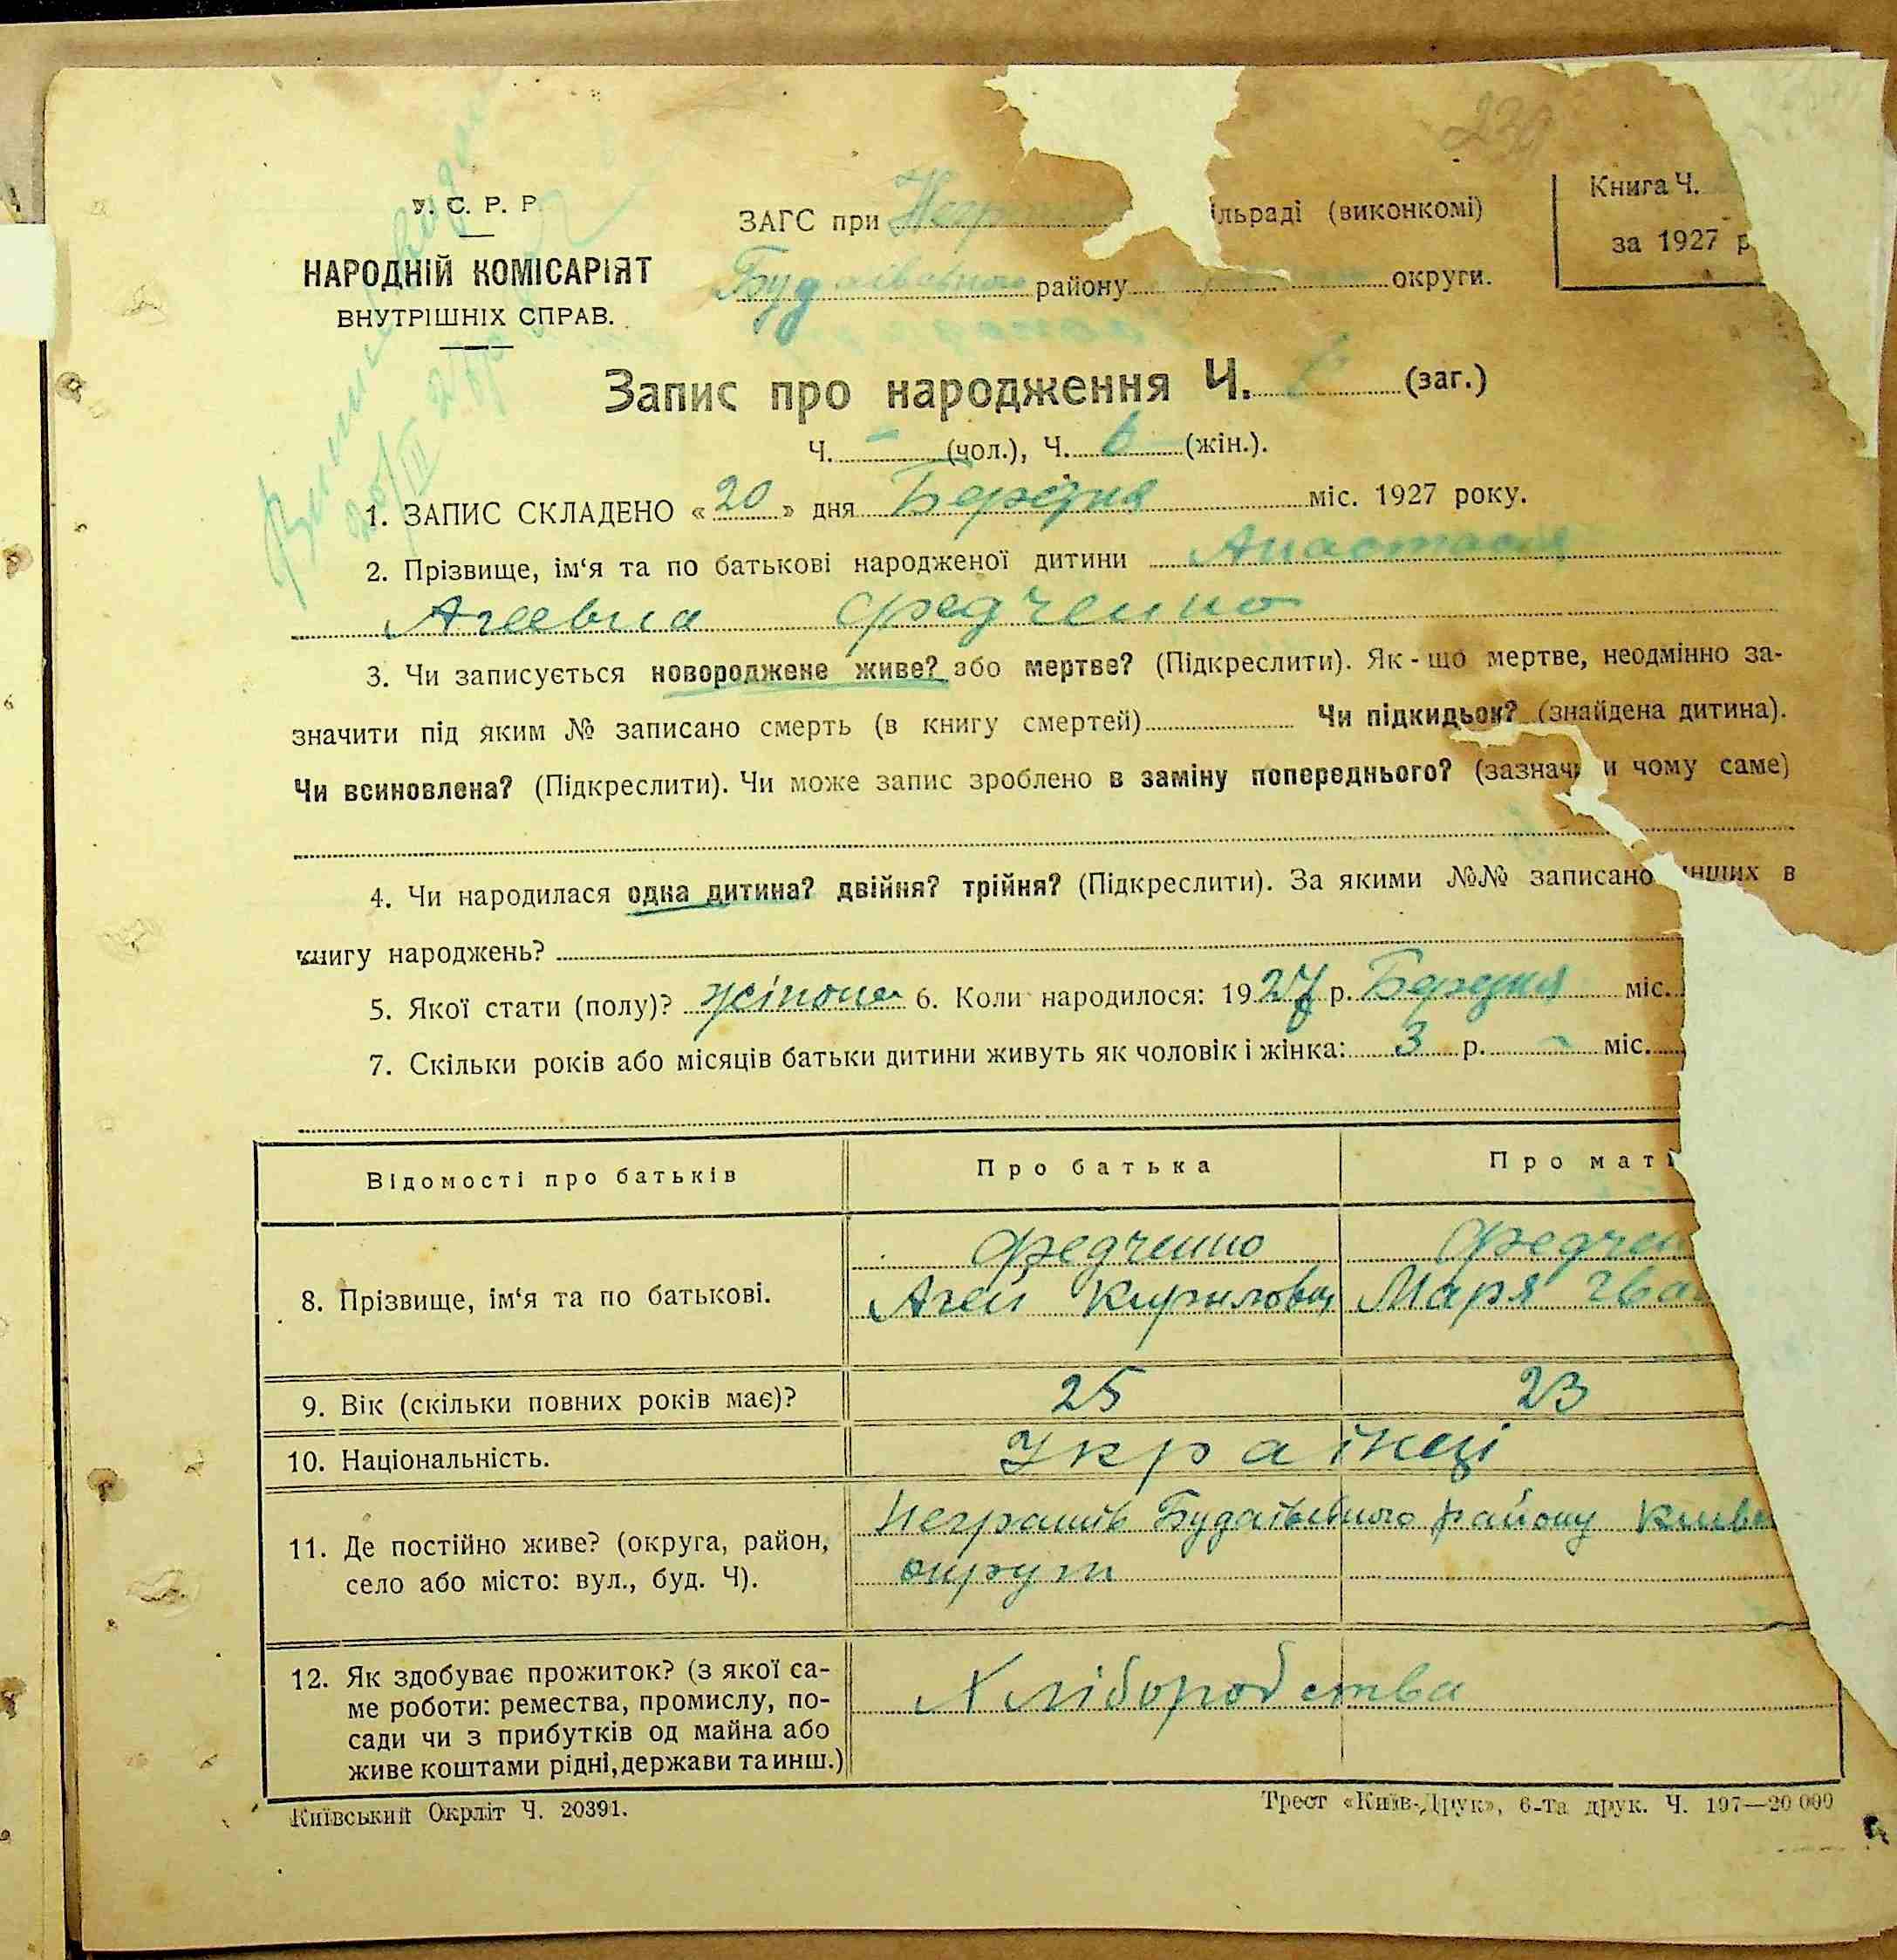 У. С. Р. Р.
НАРОДНІЙ КОМІСАРІЯТ
ВНУТРІШНІХ СПРАВ.
ЗАГС при ільраді (виконкомі)
району округи.
Книга Ч.
за 1927 р
Запис про народження Ч. (заг.)
Ч. – (чол.), Ч. 6 (жін.).
1. ЗАПИС СКЛАДЕНО «20» дня Березня міс. 1927 року.
2. Прізвище, ім‘я та по батькові народженої дитини Анастасія
Агеевна Федченко
3. Чи записується новороджене живе? або мертве? (Підкреслити). Як-що мертве, неодмінно за-
значити під яким № записано смерть (в книгу смертей) Чи підкидьок? (знайдена дитина).
Чи всиновлена? (Підкреслити). Чи може запис зроблено в заміну попереднього? (зазнач и чому саме)
4. Чи народилася одна дитина? двійня? трійня? (Підкреслити). За якими №№ записано інших в
книгу народжень?
5. Якої стати (полу)? жіноче 6. Коли народилося: 1927 р. Березня міс.
7. Скільки років або місяців батьки дитини живуть як чоловік і жінка: 3 р. – міс.
Відомості про батьків Про батька Про маті
8. Прізвище, ім‘я та по батькові.
Федченко Федчен
Агей Кирилович Маря Іван
9. Вік (скільки повних років має)? 25 23
10. Національність. Українці
11. Де постійно живе? (округа, район,
село або місто: вул., буд. Ч).
Неграшів Будаївського району Києве
округи
12. Як здобуває прожиток? (з якої са-
ме роботи: ремества, промислу, по-
сади чи з прибутків од майна або
живе коштами рідні, держави та инш.)
Хліборобства
Київський Окрліт Ч. 20391.
Трест «Київ-Друк», 6-та друк. Ч. 197—20 000